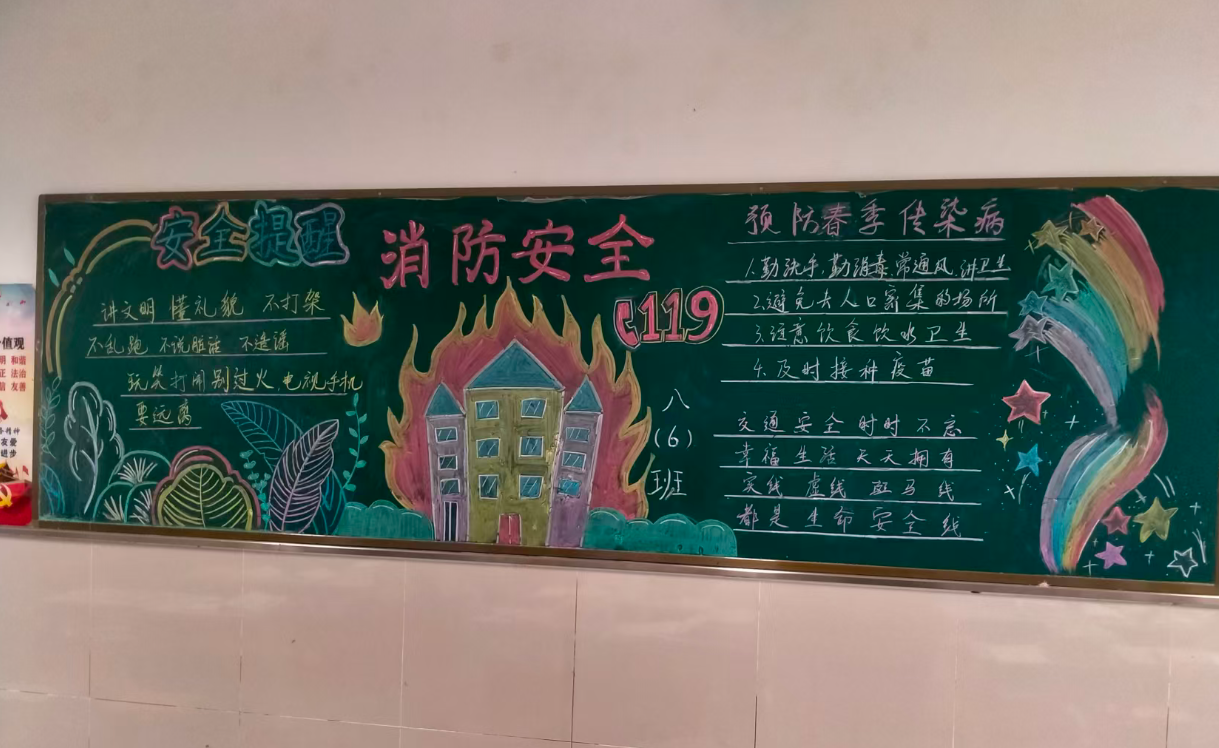 安全提醒
讲文明 懂礼貌 不打架
不乱跑 不说脏话 不造谣
玩笑打闹别过火 电视手机
要远离
消防安全
119
八
(6)
班
预防春季传染病
1.勤洗手,勤消毒,常通风,讲卫生
2.避免去人口密集的场所
3.注意饮食饮水卫生
4.及时接种疫苗
交通安全时时不忘
幸福生活天天拥有
实线 虚线 斑马线
都是生命安全线
价值观
明 和谐
正 法治
友善
友爱
进步